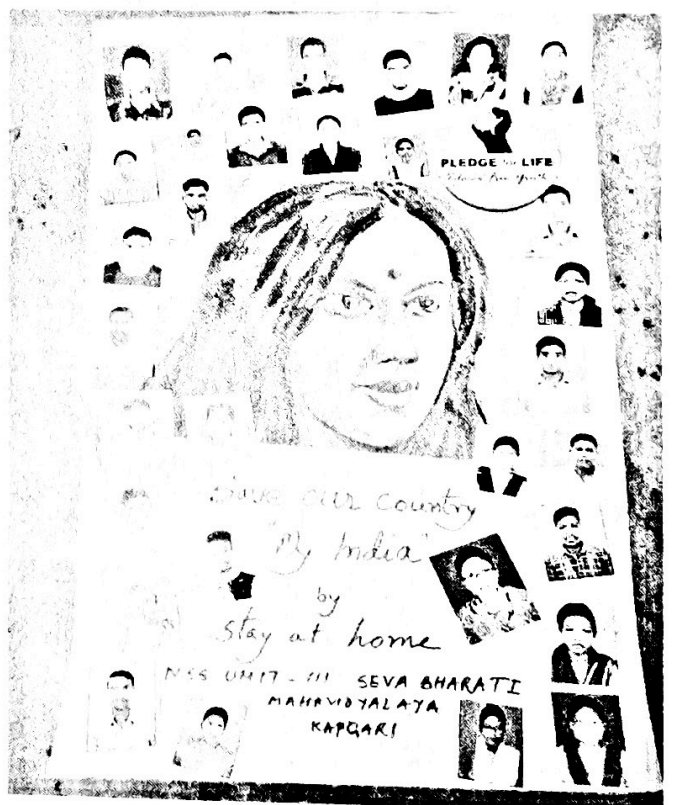 PLEDGE for LIFE
Tobacco Free Youth
Save our country
"My India"
by
Stay at home
NSS UNIT - III SEVA BHARATI
MAHAVIDYALAYA
KAPGARI